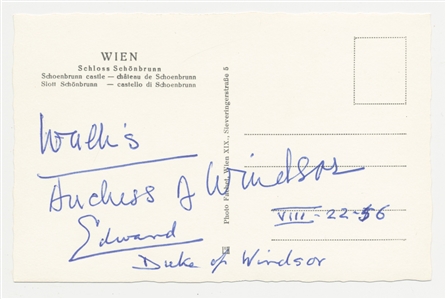 WIEN
Schloss Schönbrunn
Schoenbrunn castle — château de Schoenbrunn
Slott Schönbrunn — castello di Schoenbrunn
Photo Farbat, Wien XIX., Sieveringerstraße 5
Wallis
Duchess of Windsor
VIII-22-56
Edward
Duke of Windsor